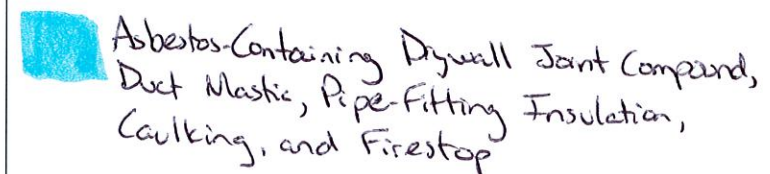 Asbestos-Containing Drywall Joint Compound,
Duct Mastic, Pipe-Fitting Insulation,
Caulking, and Firestop